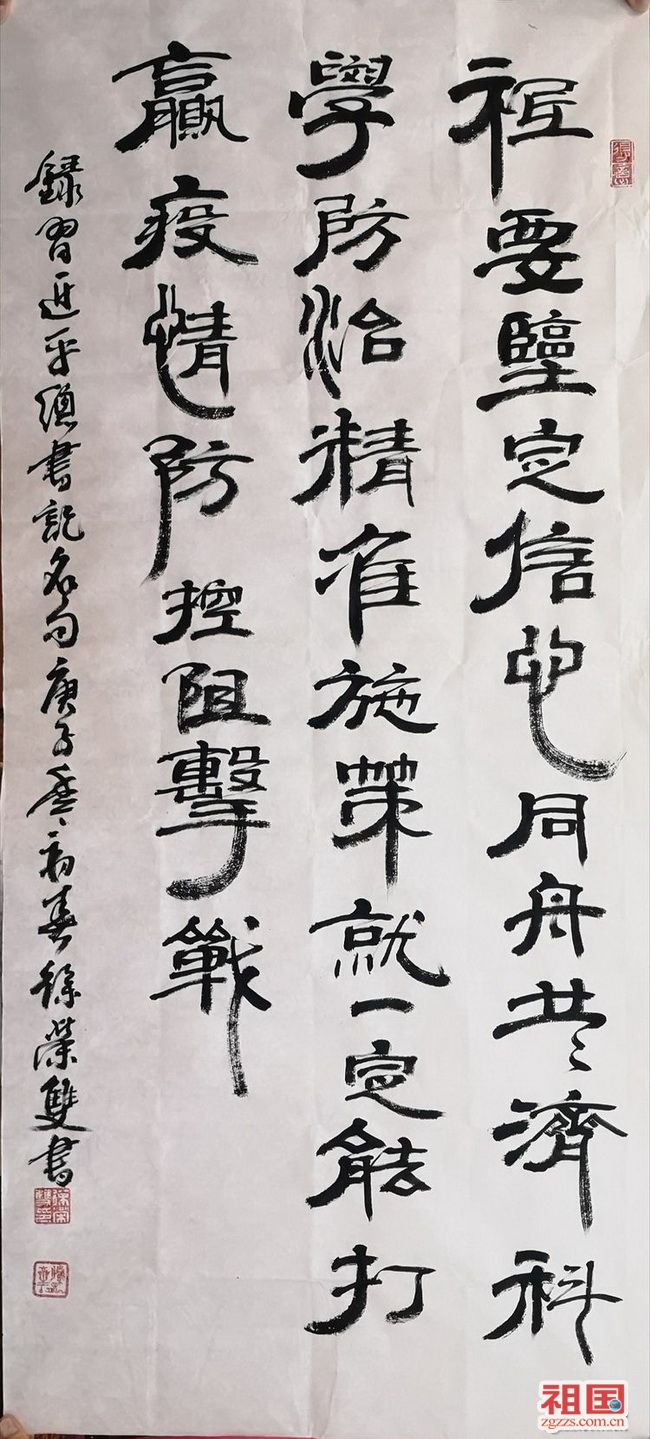 祇要堅定信心同舟共濟科
學防治精准施策就一定能打
贏疫情防控阻擊戰
錄習近平總書記名句庚子年初春徐榮雙書
徐榮雙印
祖国
zgzzs.com.cn